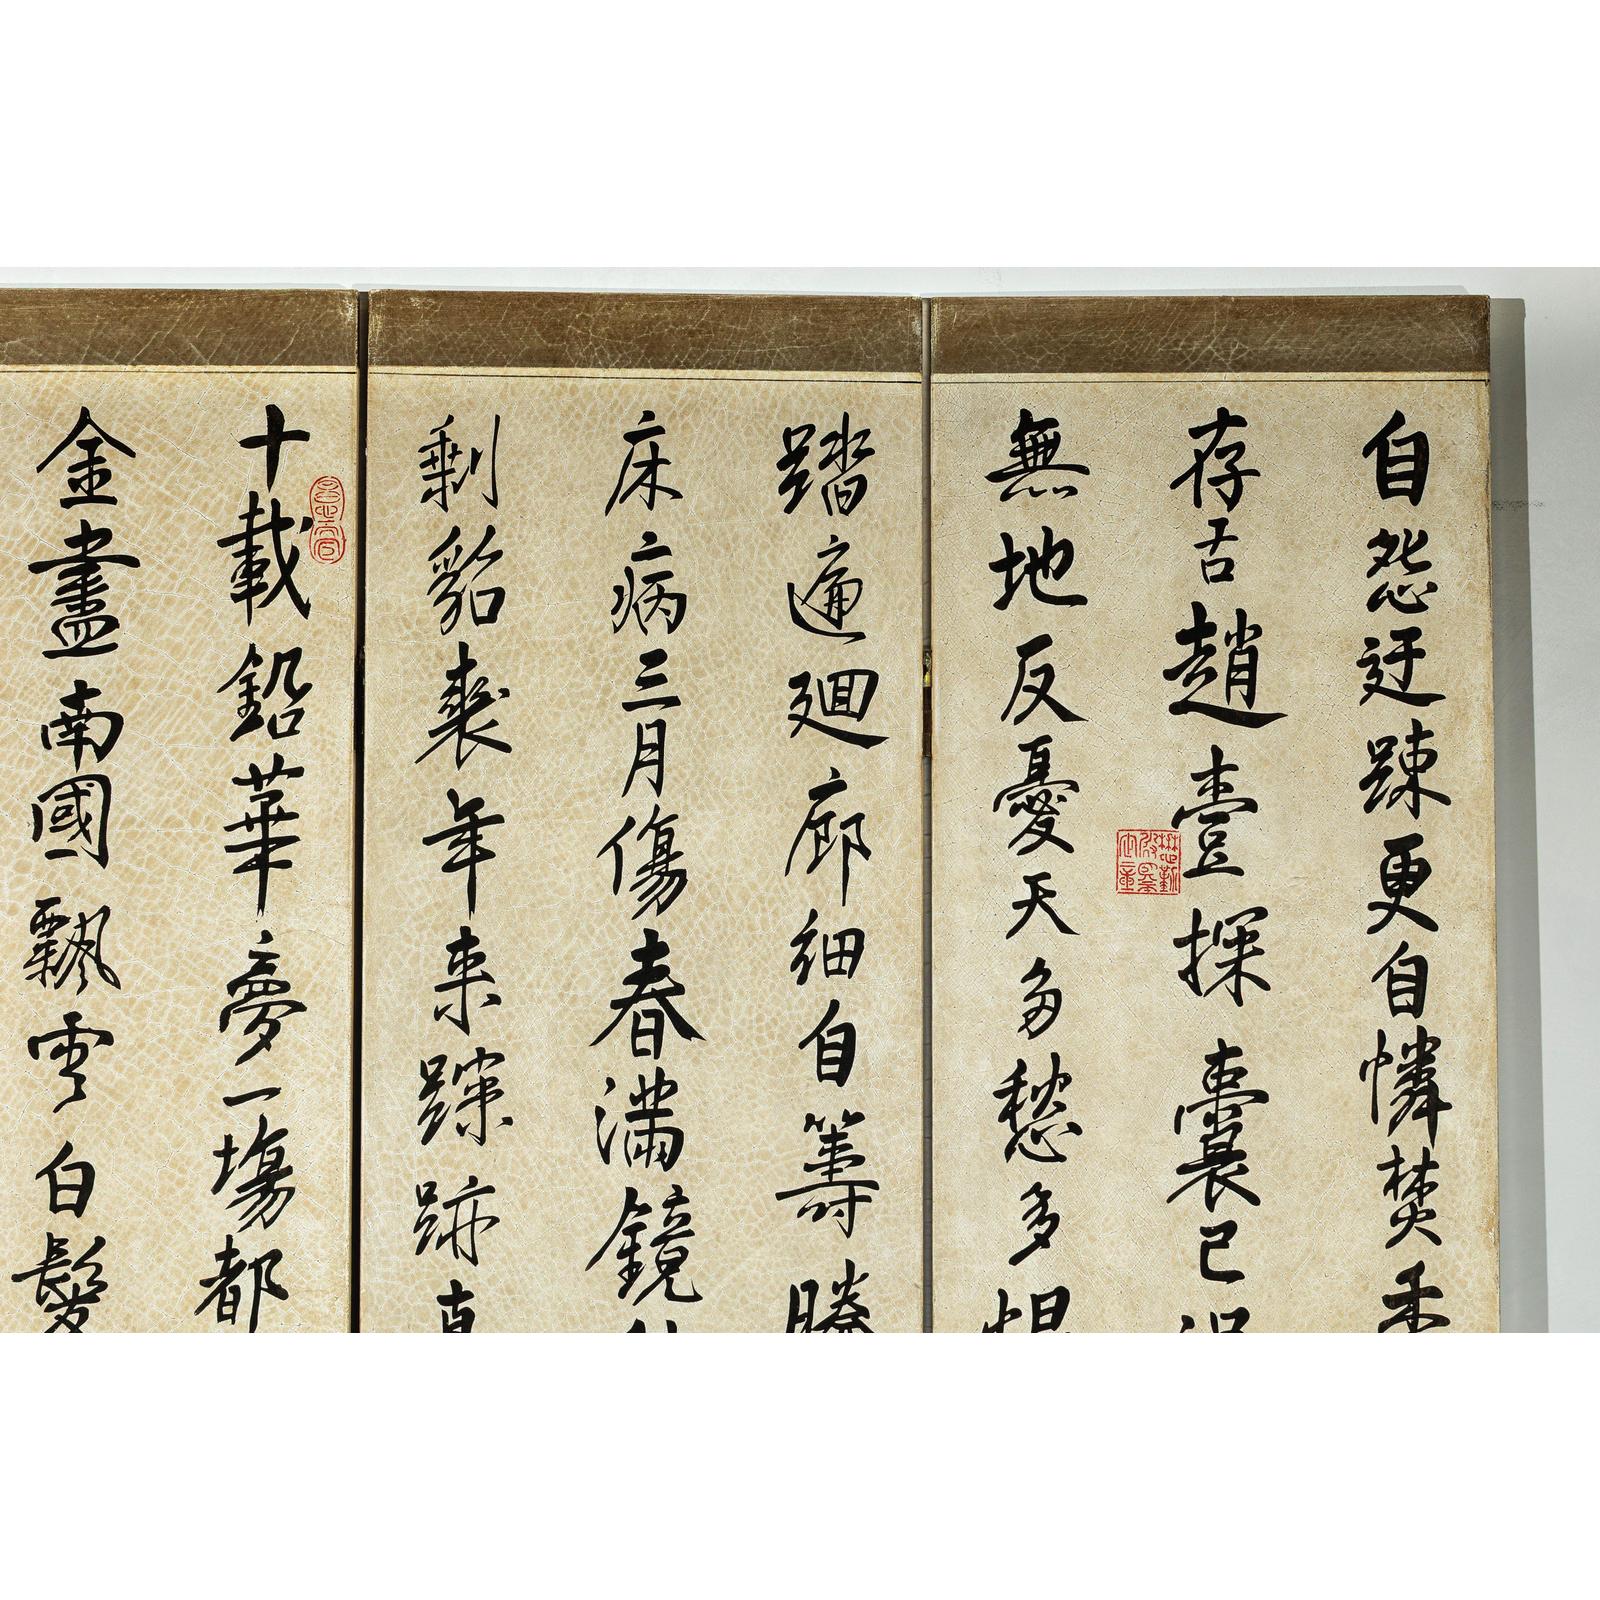 自怨迂踈更自憐焚香
存舌趙壹探囊已
無地反憂天多愁多恨
踏遍廻廊細自籌
床病三月傷春滿鏡
剩貂裘年来蹤跡真
十載鉛華夢一塲都
金盡南國飄零白髮